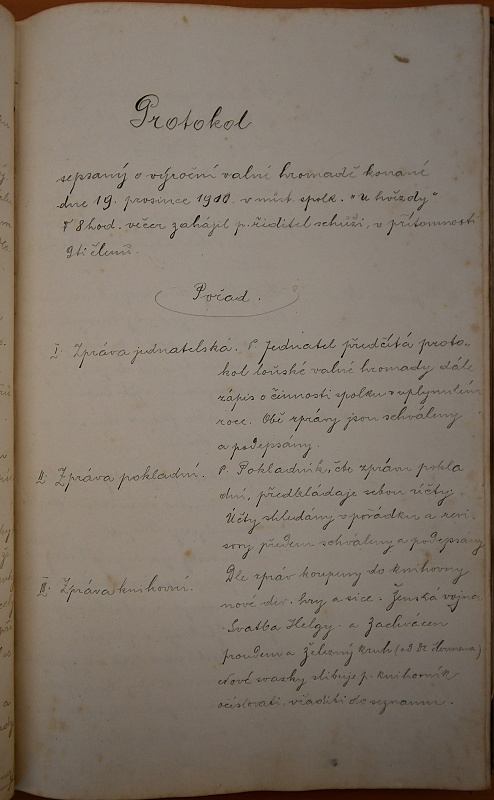 Protokol
sepsaný o výroční valní hromadě konané
dne 19. prosince 1910 v míst. spolk. "u hvízdy"
V 8 hod. večer zahájil p. řiditel schůzi, v přítomnosti
9ti členů.
Pořad.
I. Zpráva jednatelská. P. Jednatel předčítá proto-
kol loňské valné hromady, dále
zápis o činnosti spolku v uplynulém
roce. Obě zprávy jsou schváleny
a podepsány.
II. Zpráva pokladní. P. Pokladník, čte zprávu pokla
dní, předkládaje sebou účty.
Účty shledány v pořádku a revi-
sory předem schváleny a podepsány
III. Zpráva knihovní. Dle zpráv koupeny do knihovny
nové div. hry a sice. Ženská vojna
Svatba Helgy. a Zachvácen
proudem a Železný kruh
Nové svazky slibuje p. knihovník
očíslovati, vřaditi do seznamu.